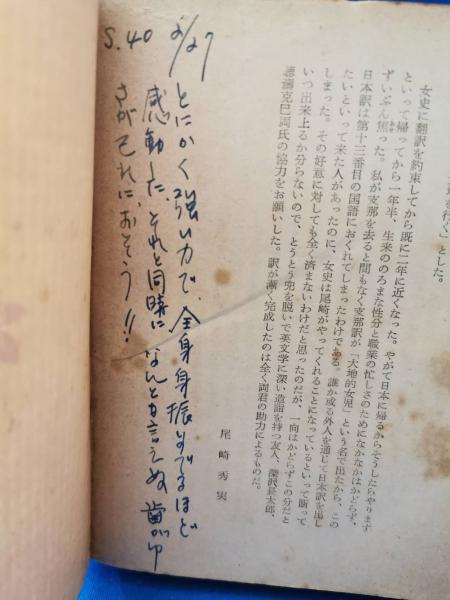 女史を行く」とした。
女史に翻訳を約束してから既に二年に近くなった。やがて日本に帰るからそうしたらやります
といって帰ってから一年半、生来ののろまな性分と職業の忙しさのためになかなかはかどらず、
ずいぶん焦った。私が支那を去ると間もなく支那訳が「大地的女児」という名で出たから、この
日本訳は第十三番目の国語におくれてしまったわけである。誰か或る外人を通じて日本訳を出し
たいといって来た人があったのに、女史は尾崎がやってくれることになっているといって断って
しまった。その好意に対しても全く済まないわけだと思ったのだが、一向はかどらずこの分だと
いつ出来上るか分らないので、とうとう兜を脱いで英文学に深い造詣を持つ友人、深沢長太郎、
克巳両氏の協力をお願いした。訳が漸く完成したのは全く両君の助力によるものだ。
尾崎秀実
S.40 2/27
とにかく強い力で、全身身振いでるほど
感動した。それと同時になんとも言えぬ歯がゆ
さがおれにおそう!!